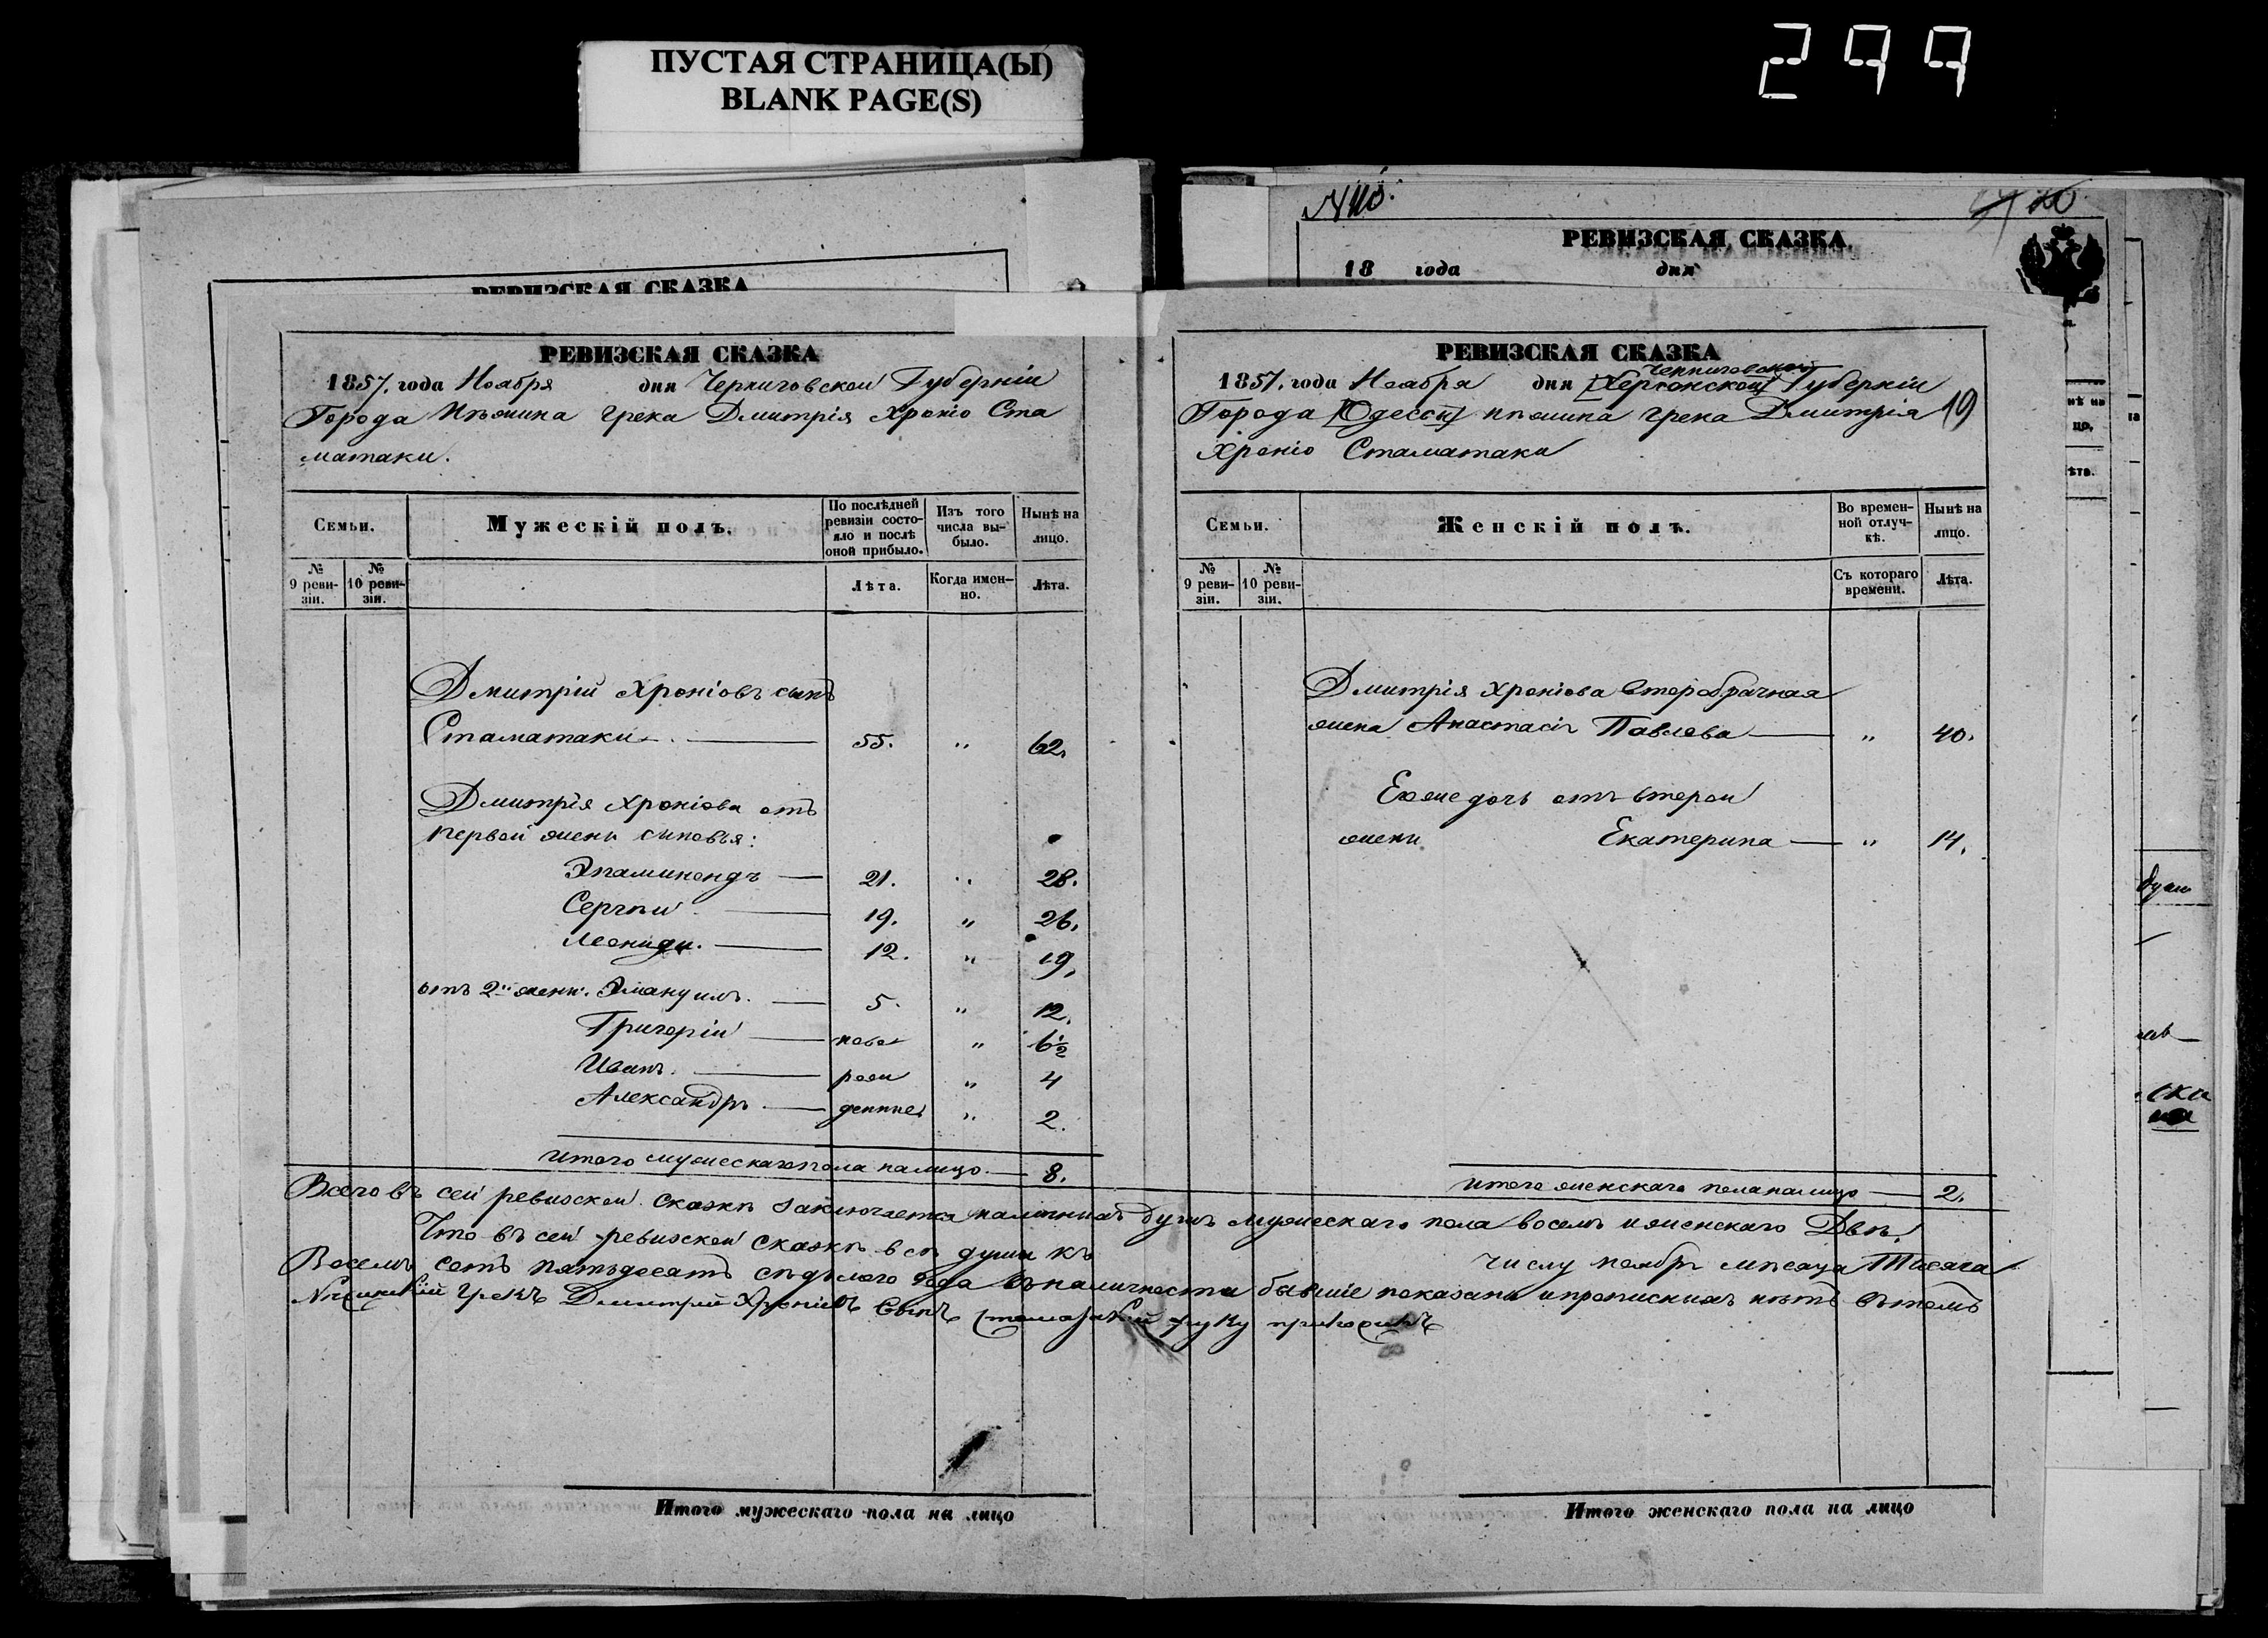 ПУСТАЯ СТРАНИЦА(Ы)
BLANK PAGE(S)
299
РЕВИЗСКАЯ СКАЗКА
РЕВИЗСКАЯ СКАЗКА
1857. года Ноября дня Черниговской Губерніи
Города Нѣжина Грека Дмитрія Хроніо Ста
матаки.
Семьи.
Мужескій полъ.
По послѣдней ревизіи состояло и послѣ оной прибыло.
Изъ того числа выбыло.
Нынѣ на лицо.
№ 9 ревизіи.
№ 10 ревизіи.
Лѣта.
Когда именно.
Лѣта.
Дмитрій Хроніовъ сынъ
Стаматаки 55. " 62.
Дмитрія Хроніова отъ
первой жены сыновья:
Эпаминондъ 21. " 28.
Сергѣй 19. " 26.
Леонидъ. 12. " 19.
отъ 2й жены. Эмануилъ. 5. " 12.
Григорій ново " 6½
Иванъ. рож " 4
Александръ денные " 2.
Итого мужескаго пола налицо 8.
№
20
РЕВИЗСКАЯ СКАЗКА.
18 года дня
РЕВИЗСКАЯ СКАЗКА
Черниговской
1857. года Ноября дня [Херсонской] Губерніи
Города [Одессы] Нѣжина грека Дмитрія 19
Хроніо Стаматаки
Семьи.
Женскій полъ.
Во временной отлучкѣ.
Нынѣ на лицо.
№ 9 ревизіи.
№ 10 ревизіи.
Съ котораго времени.
Лѣта.
Дмитрія Хроніова второбрачная
жена Анастасія Павлова " 40.
Егоже дочь отъ второй
жены Екатерина " 14.
Итого женскаго пола налицо 2.
Всего въ сей ревизской сказкѣ заключается наличныхъ душъ мужескаго пола восемь и женскаго Двѣ.
Что въ сей ревизской сказкѣ всѣ души къ числу ноябрь мѣсяца Тысяча
Восемь сотъ пятьдесятъ седьмого года въ наличности бывшіе показаны и прописныхъ нѣтъ въ томъ
Нѣжинскій Грекъ Дмитрій Хроніовъ Сынъ Стаматакій руку приложилъ
Итого мужескаго пола на лицо
Итого женскаго пола на лицо